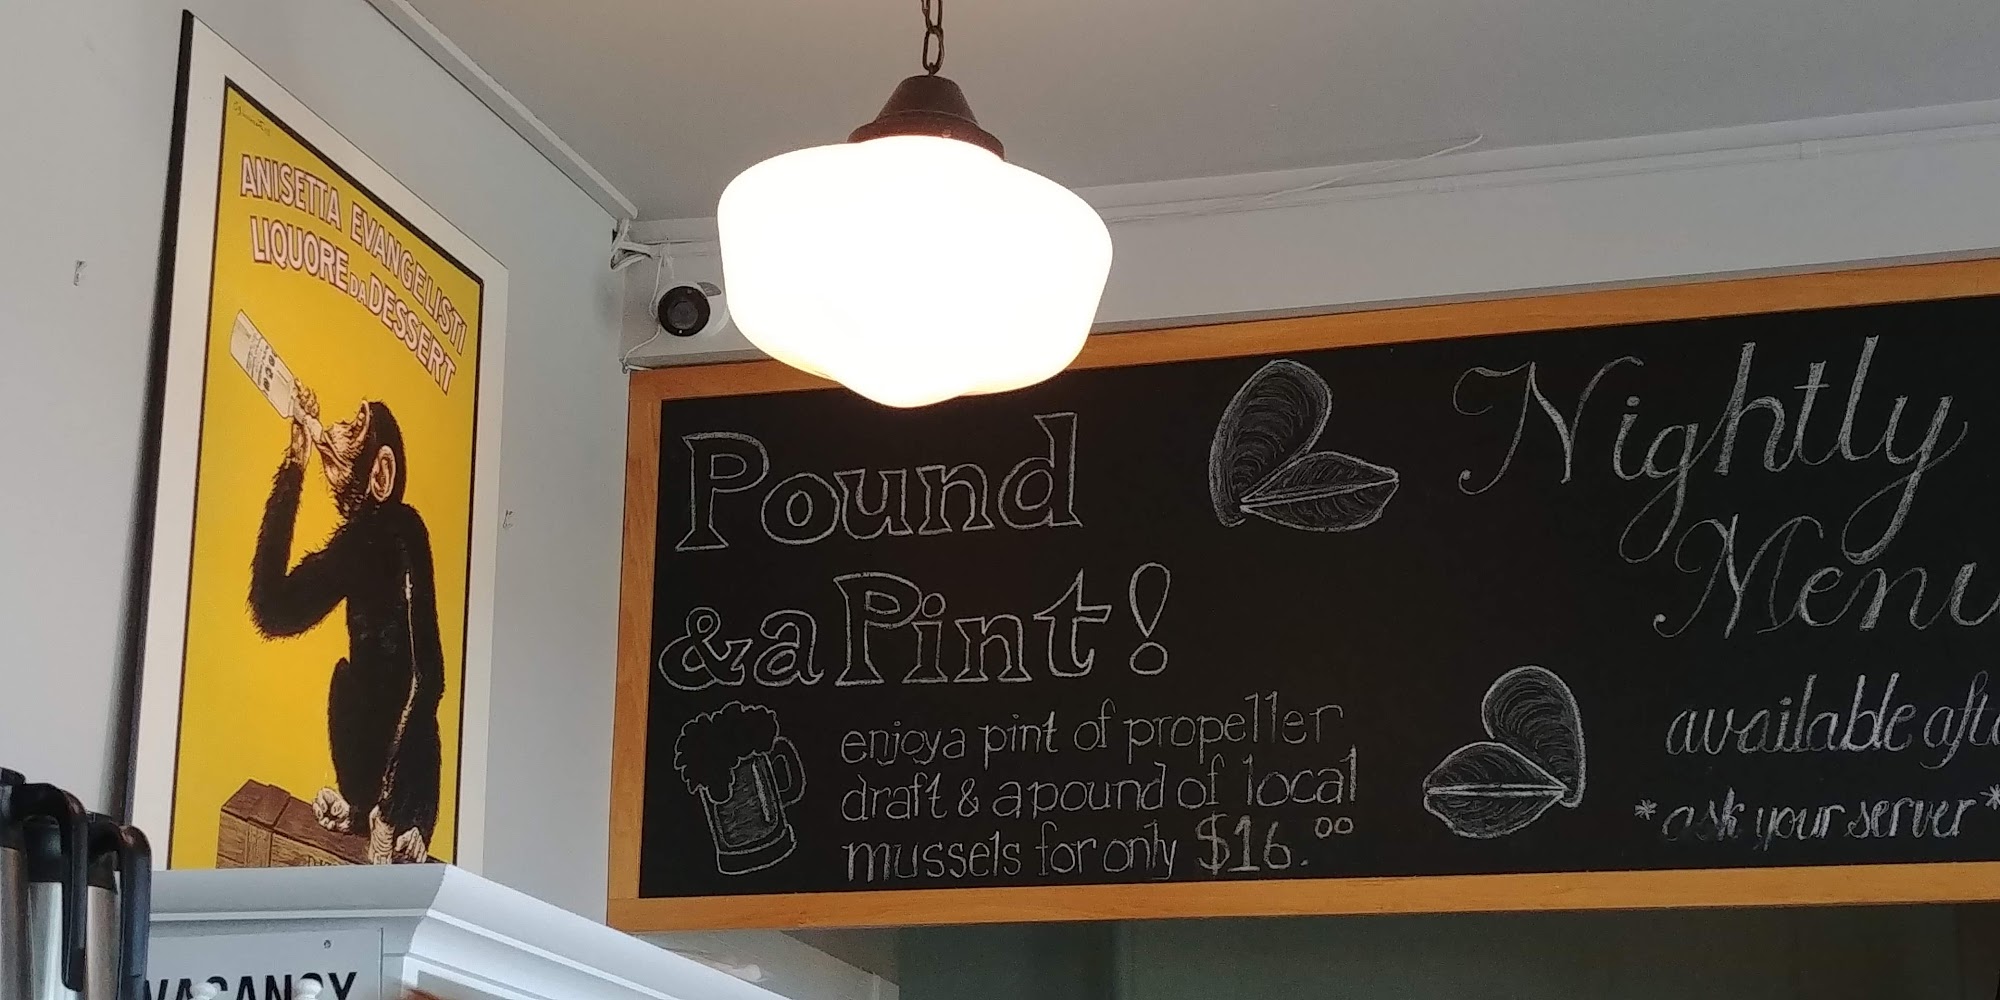 ANISETTA EVANGELISTI
LIQUORE DA DESSERT
Pound
& a Pint!
enjoy a pint of propeller
draft & a pound of local
mussels for only $16.00
Nightly
Menu
available
*ask your server*
VACANCY